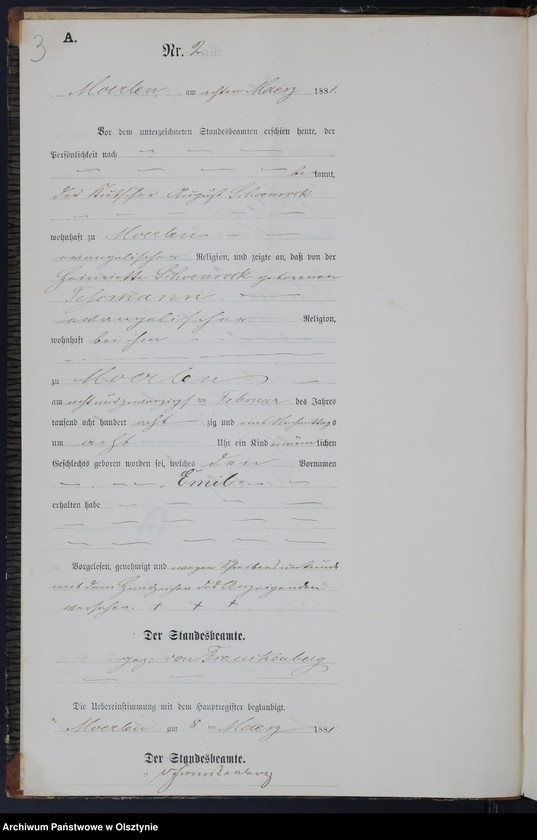 3
A.
Nr. 2
Moerlen am achten Maerz 1881.
Vor dem unterzeichneten Standesbeamten erschien heute, der
Persönlichkeit nach
be kannt,
der Kutscher August
wohnhaft zu Moerlen
evangelischer Religion, und zeigte an, daß von der
Henriette geborenen
evangelischer Religion,
wohnhaft bei ihm
zu Moerlen
am achtundzwanzigsten Februar des Jahres
tausend acht hundert acht zig und eins Vormittags
um acht Uhr ein Kind männlichen
Geschlechts geboren worden sei, welches den Vornamen
Emil
erhalten habe
Vorgelesen, genehmigt und wegen Schreibensunkunde
mit dem Handzeichen des Anzeigenden
versehen. + + +
Der Standesbeamte.
gez. von
Die Uebereinstimmung mit dem Hauptregister beglaubigt.
Moerlen am 8 ten Maerz 1881
Der Standesbeamte.
Archiwum Państwowe w Olsztynie